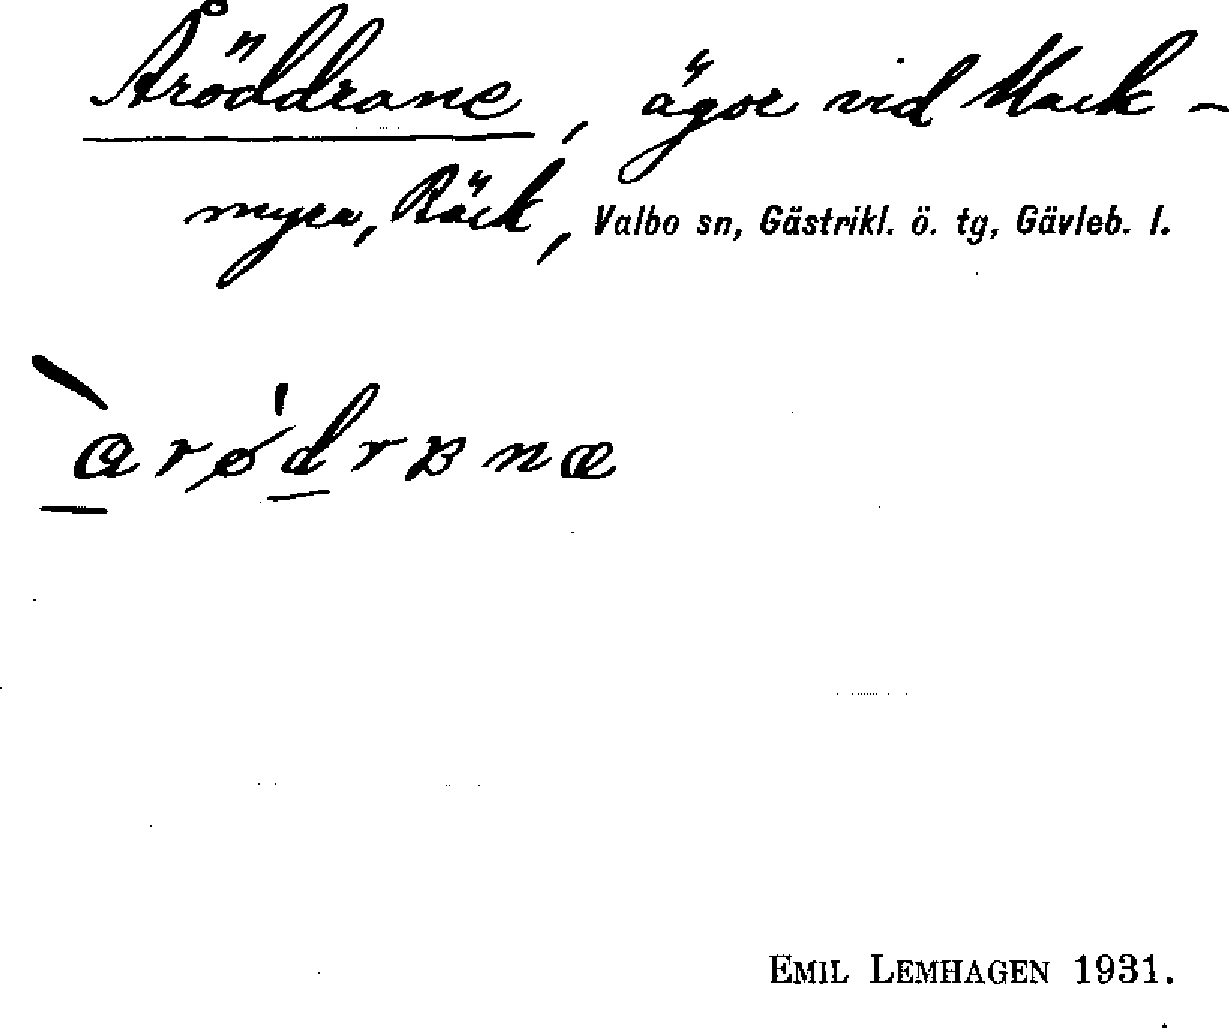 Åröddrane, ägor vid Mack-
myra, Räck, Valbo sn, Gästrikl. ö. tg, Gävleb. l.
EMIL LEMHAGEN 1931.